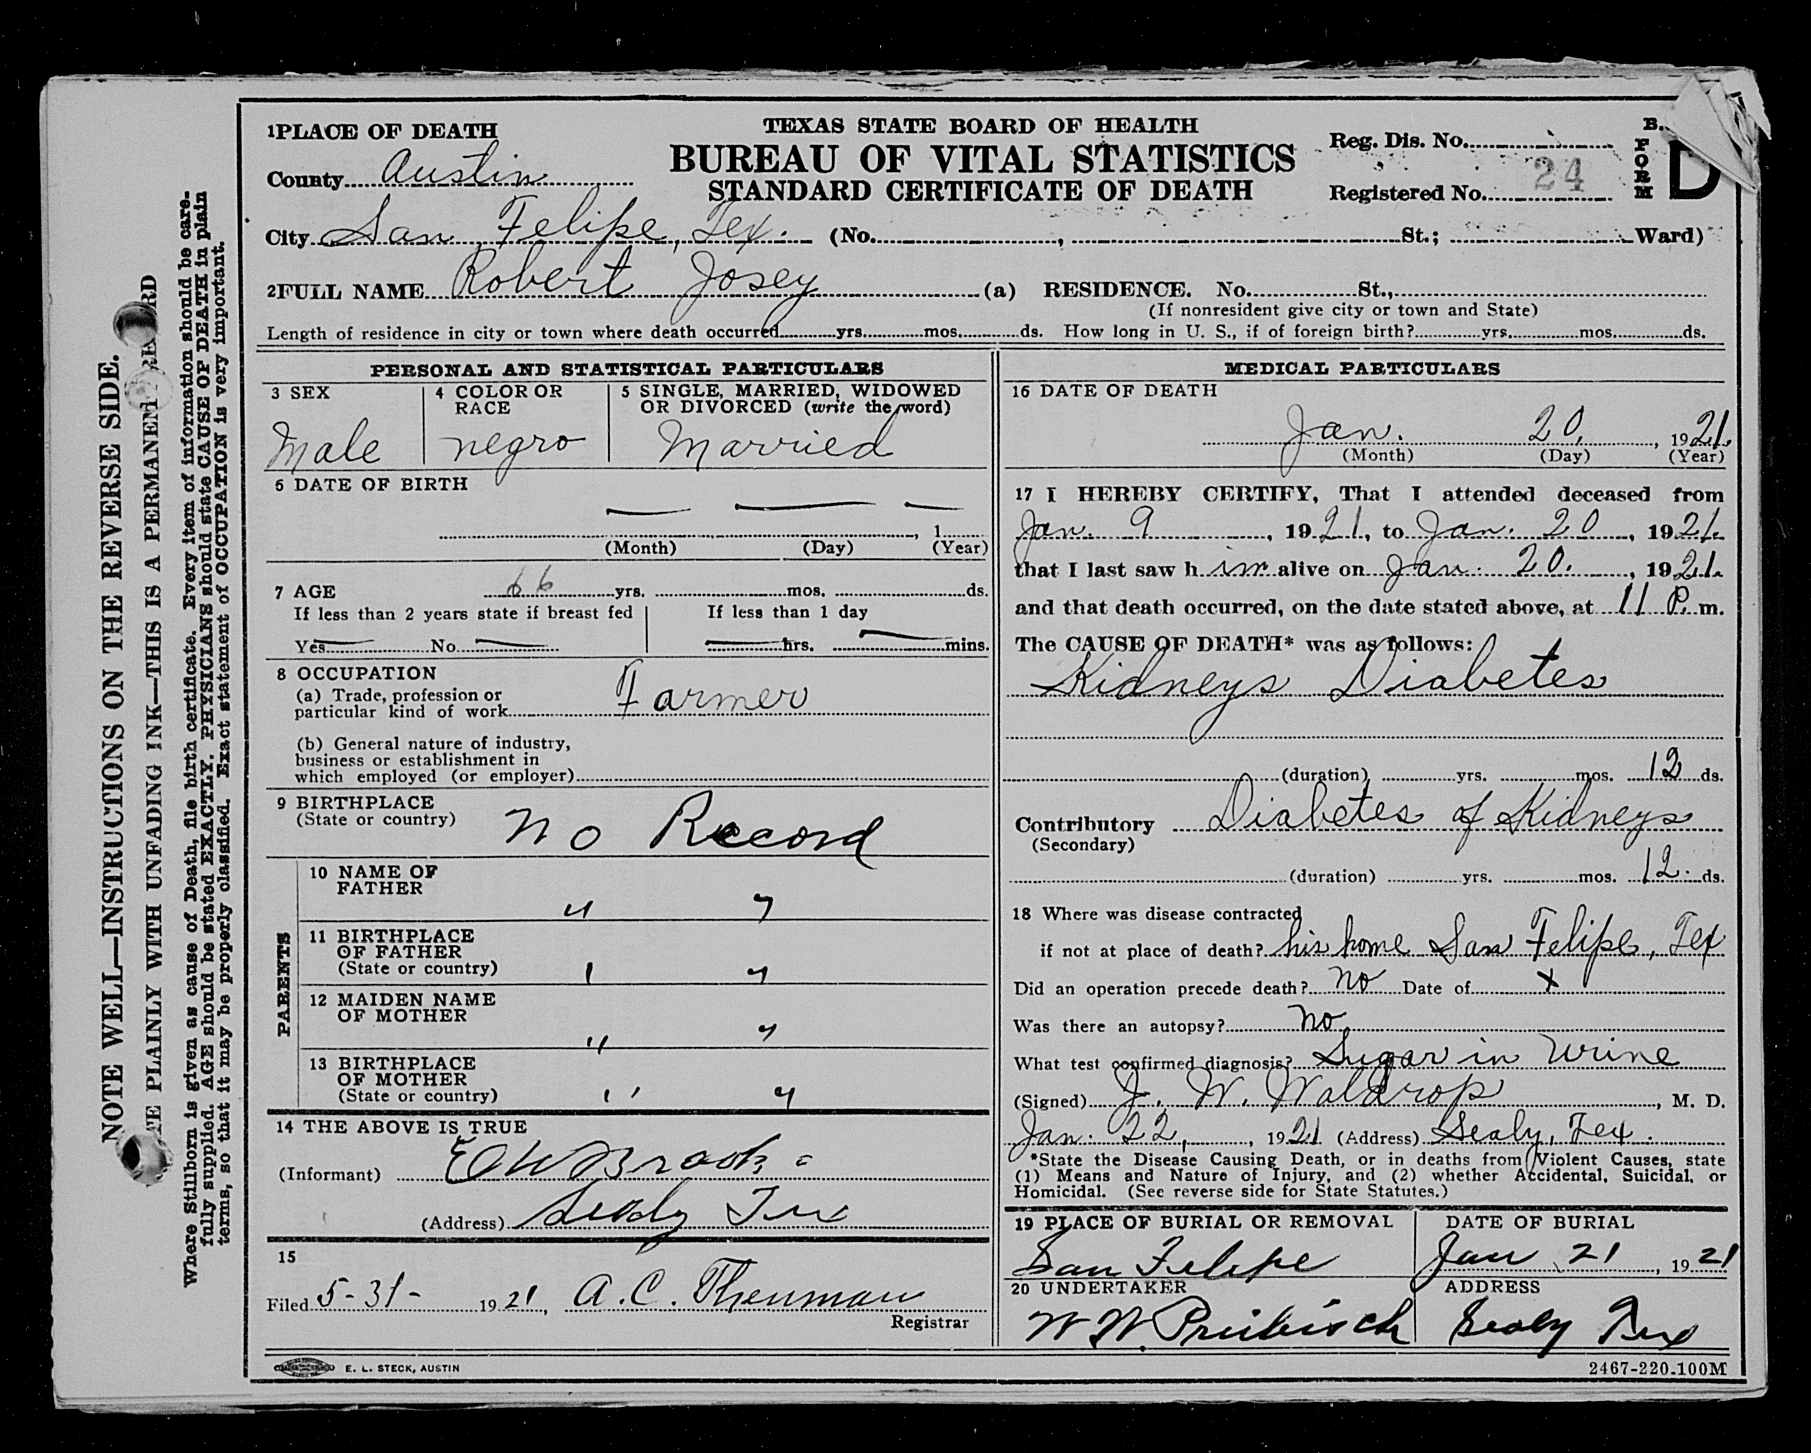 NOTE WELL—INSTRUCTIONS ON THE REVERSE SIDE.
PLAINLY WITH UNFADING INK—THIS IS A PERMANENT
Where Stillborn is given as cause of Death, file birth certificate. Every item of information should be care-
fully supplied. AGE should be stated EXACTLY. PHYSICIANS should state CAUSE OF DEATH in plain
terms, so that it may be properly classified. Exact statement of OCCUPATION is very important.
TEXAS STATE BOARD OF HEALTH
BUREAU OF VITAL STATISTICS
STANDARD CERTIFICATE OF DEATH
Reg. Dis. No.
Registered No. 24
B.
FORM D
1 PLACE OF DEATH
County Austin
City San Felipe, Tex. (No. , St.; Ward)
2 FULL NAME Robert Josey (a) RESIDENCE. No. St.,
(If nonresident give city or town and State)
Length of residence in city or town where death occurred yrs. mos. ds. How long in U. S., if of foreign birth? yrs. mos. ds.
PERSONAL AND STATISTICAL PARTICULARS
3 SEX
Male
4 COLOR OR RACE
negro
5 SINGLE, MARRIED, WIDOWED
OR DIVORCED (write the word)
Married
6 DATE OF BIRTH
— — —
, 1
(Month) (Day) (Year)
7 AGE 66 yrs. mos. ds.
If less than 2 years state if breast fed
If less than 1 day
Yes — No — — hrs. — mins.
8 OCCUPATION
(a) Trade, profession or
particular kind of work Farmer
(b) General nature of industry,
business or establishment in
which employed (or employer)
9 BIRTHPLACE
(State or country) No Record
PARENTS
10 NAME OF
FATHER " "
11 BIRTHPLACE
OF FATHER
(State or country) " "
12 MAIDEN NAME
OF MOTHER " "
13 BIRTHPLACE
OF MOTHER
(State or country) " "
14 THE ABOVE IS TRUE
(Informant)
(Address) Sealy Tex
15
Filed 5-31- 1921, A. C. Thenman
Registrar
E. L. STECK, AUSTIN
MEDICAL PARTICULARS
16 DATE OF DEATH
Jan. 20, , 1921.
(Month) (Day) (Year)
17 I HEREBY CERTIFY, That I attended deceased from
Jan. 9 , 1921, to Jan. 20 , 1921.
that I last saw him alive on Jan. 20. , 1921.
and that death occurred, on the date stated above, at 11 P. m.
The CAUSE OF DEATH* was as follows:
Kidneys Diabetes
(duration) yrs. mos. 12 ds.
Contributory Diabetes of Kidneys
(Secondary)
(duration) yrs. mos. 12. ds.
18 Where was disease contracted
if not at place of death? his home San Felipe, Tex
Did an operation precede death? No Date of x
Was there an autopsy? No
What test confirmed diagnosis? Sugar in Urine
(Signed) J. W. Waldrop , M. D.
Jan. 22, , 1921 (Address) Sealy, Tex.
*State the Disease Causing Death, or in deaths from Violent Causes, state
(1) Means and Nature of Injury, and (2) whether Accidental, Suicidal, or
Homicidal. (See reverse side for State Statutes.)
19 PLACE OF BURIAL OR REMOVAL
San Felipe
DATE OF BURIAL
Jan 21 , 1921
20 UNDERTAKER
W W. Preibisch
ADDRESS
Sealy Tex
2467-220.100M